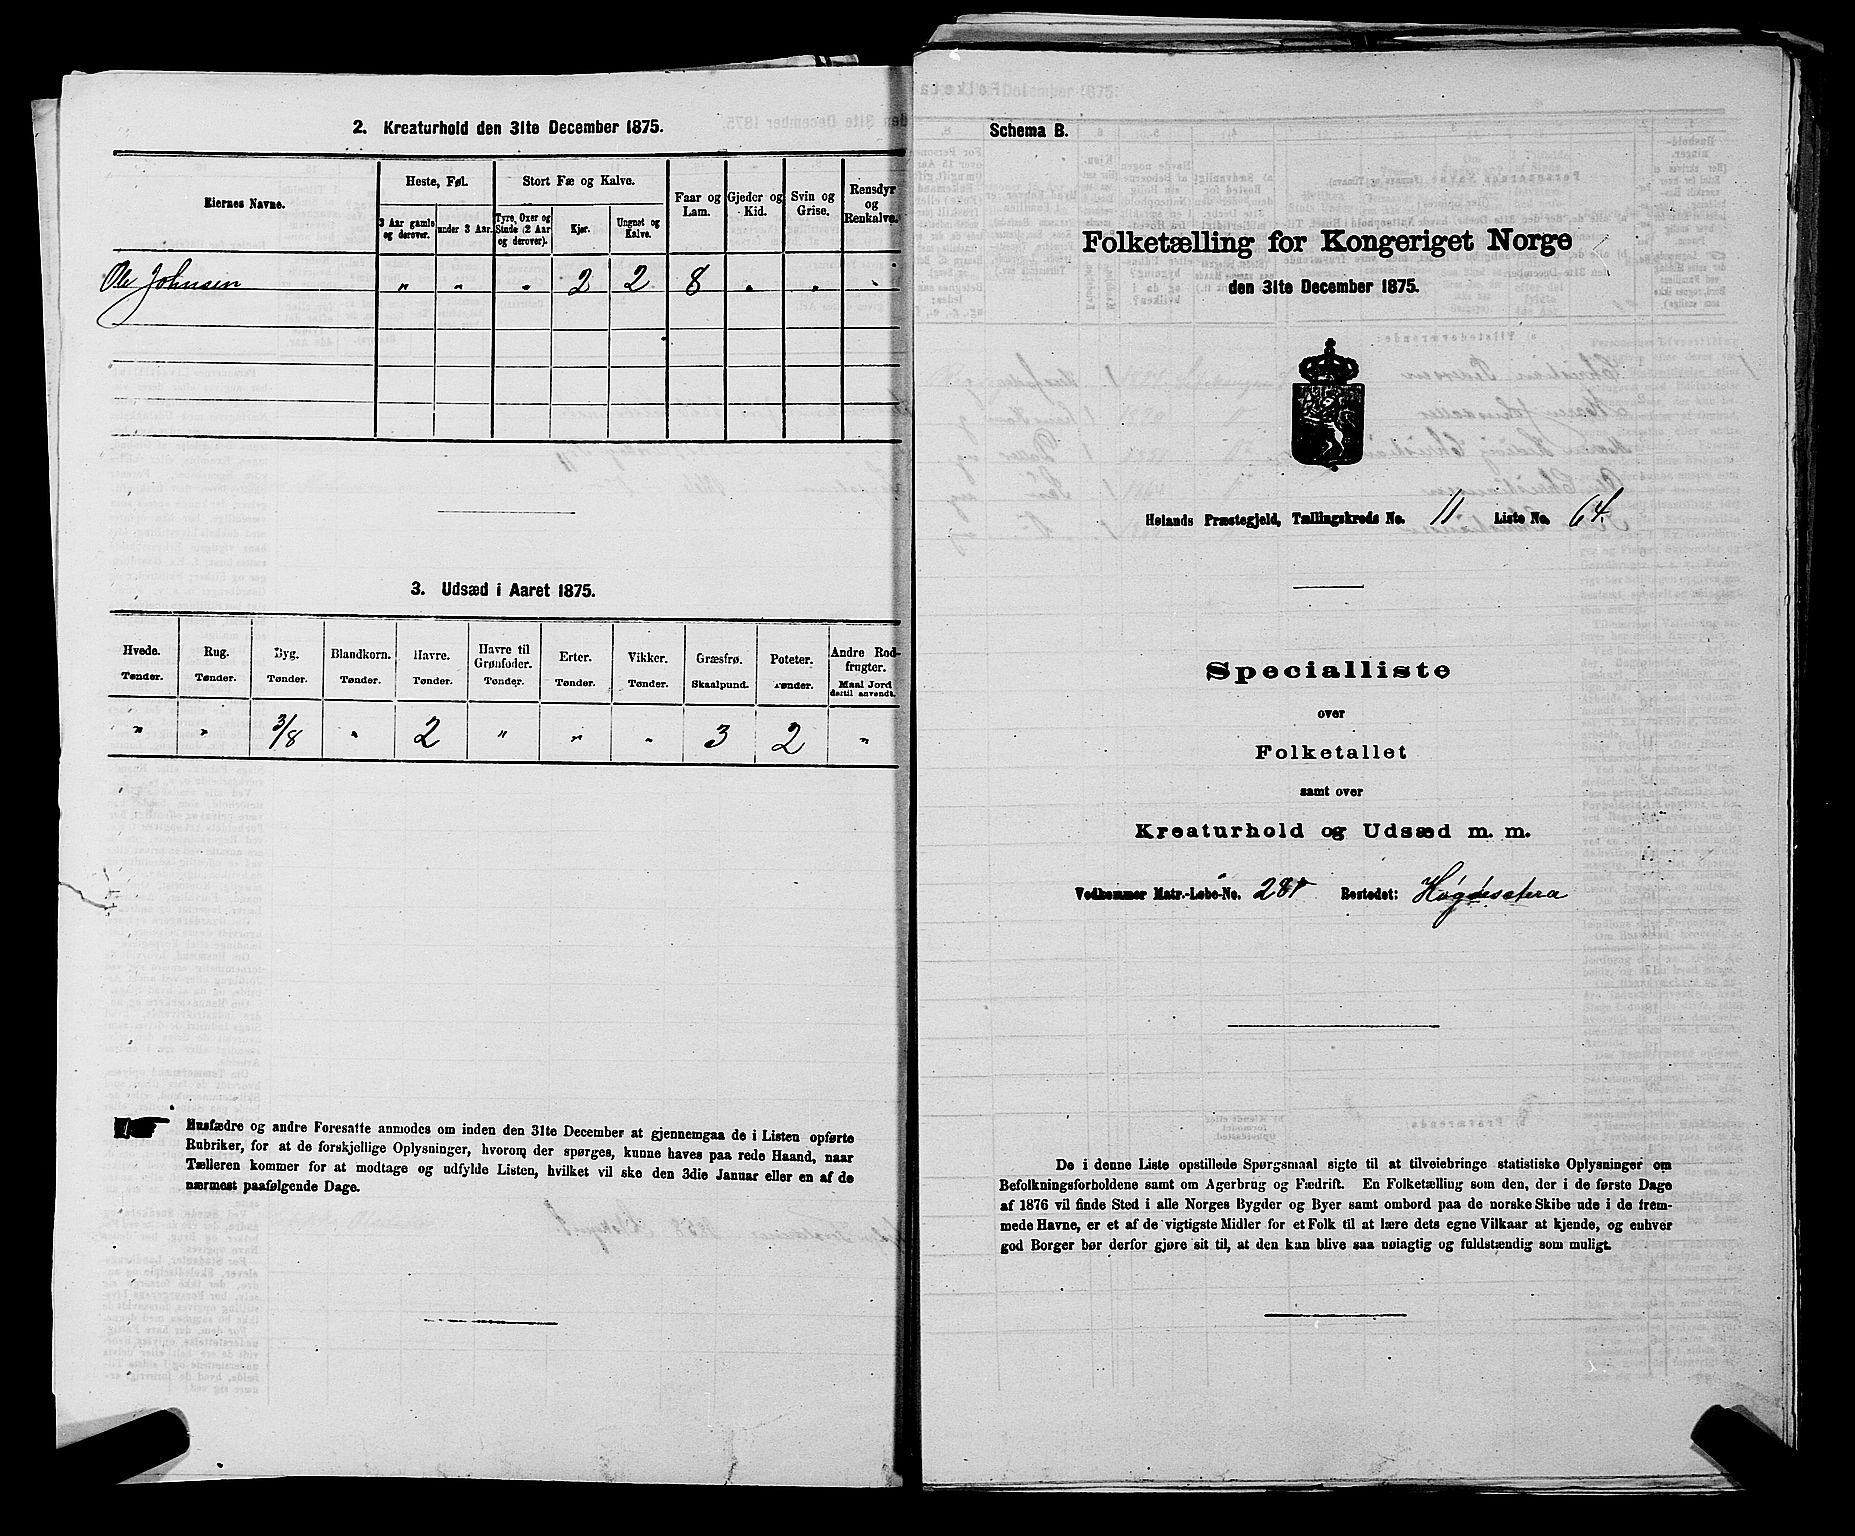 2. Kreaturhold den 31te December 1875.
Eiernes Navne.
Heste, Føl.
Stort Fæ og Kalve.
Faar og Lam.
Gjeder og Kid.
Svin og Grise.
Rensdyr og Renkalve.
3 Aar gamle og derover.
under 3 Aar.
Tyre, Oxer og Stude (2 Aar og derover).
Kjør.
Ungnøt og Kalve.
Ole Johnsen " " " 2 2 8 " " "
3. Udsæd i Aaret 1875.
Hvede. Rug. Byg. Blandkorn. Havre. Havre til Grønfoder. Erter. Vikker. Græsfrø. Poteter. Andre Rodfrugter.
Tønder. Tønder. Tønder. Tønder. Tønder. Tønder. Tønder. Tønder. Skaalpund. Tønder. Maal Jord dertil anvendt.
" " 3/8 " 2 " " " 3 2 "
Husfædre og andre Foresatte anmodes om inden den 31te December at gjennemgaa de i Listen opførte
Rubriker, for at de forskjellige Oplysninger, hvorom der spørges, kunne haves paa rede Haand, naar
Tælleren kommer for at modtage og udfylde Listen, hvilket vil ske den 3die Januar eller en af de
nærmest paafølgende Dage.
Schema B.
Folketælling for Kongeriget Norge
den 31te December 1875.
Hølands Præstegjeld, Tællingskreds No. 11 Liste No. 64.
Specialliste
over
Folketallet
samt over
Kreaturhold og Udsæd m. m.
Vedkommer Matr.-Løbe-No. Bostedet:
De i denne Liste opstillede Spørgsmaal sigte til at tilveiebringe statistiske Oplysninger om
Befolkningsforholdene samt om Agerbrug og Fædrift. En Folketælling som den, der i de første Dage
af 1876 vil finde Sted i alle Norges Bygder og Byer samt ombord paa de norske Skibe ude i de frem-
mede Havne, er et af de vigtigste Midler for et Folk til at lære dets egne Vilkaar at kjende, og enhver
god Borger bør derfor gjøre sit til, at den kan blive saa nøiagtig og fuldstændig som muligt.